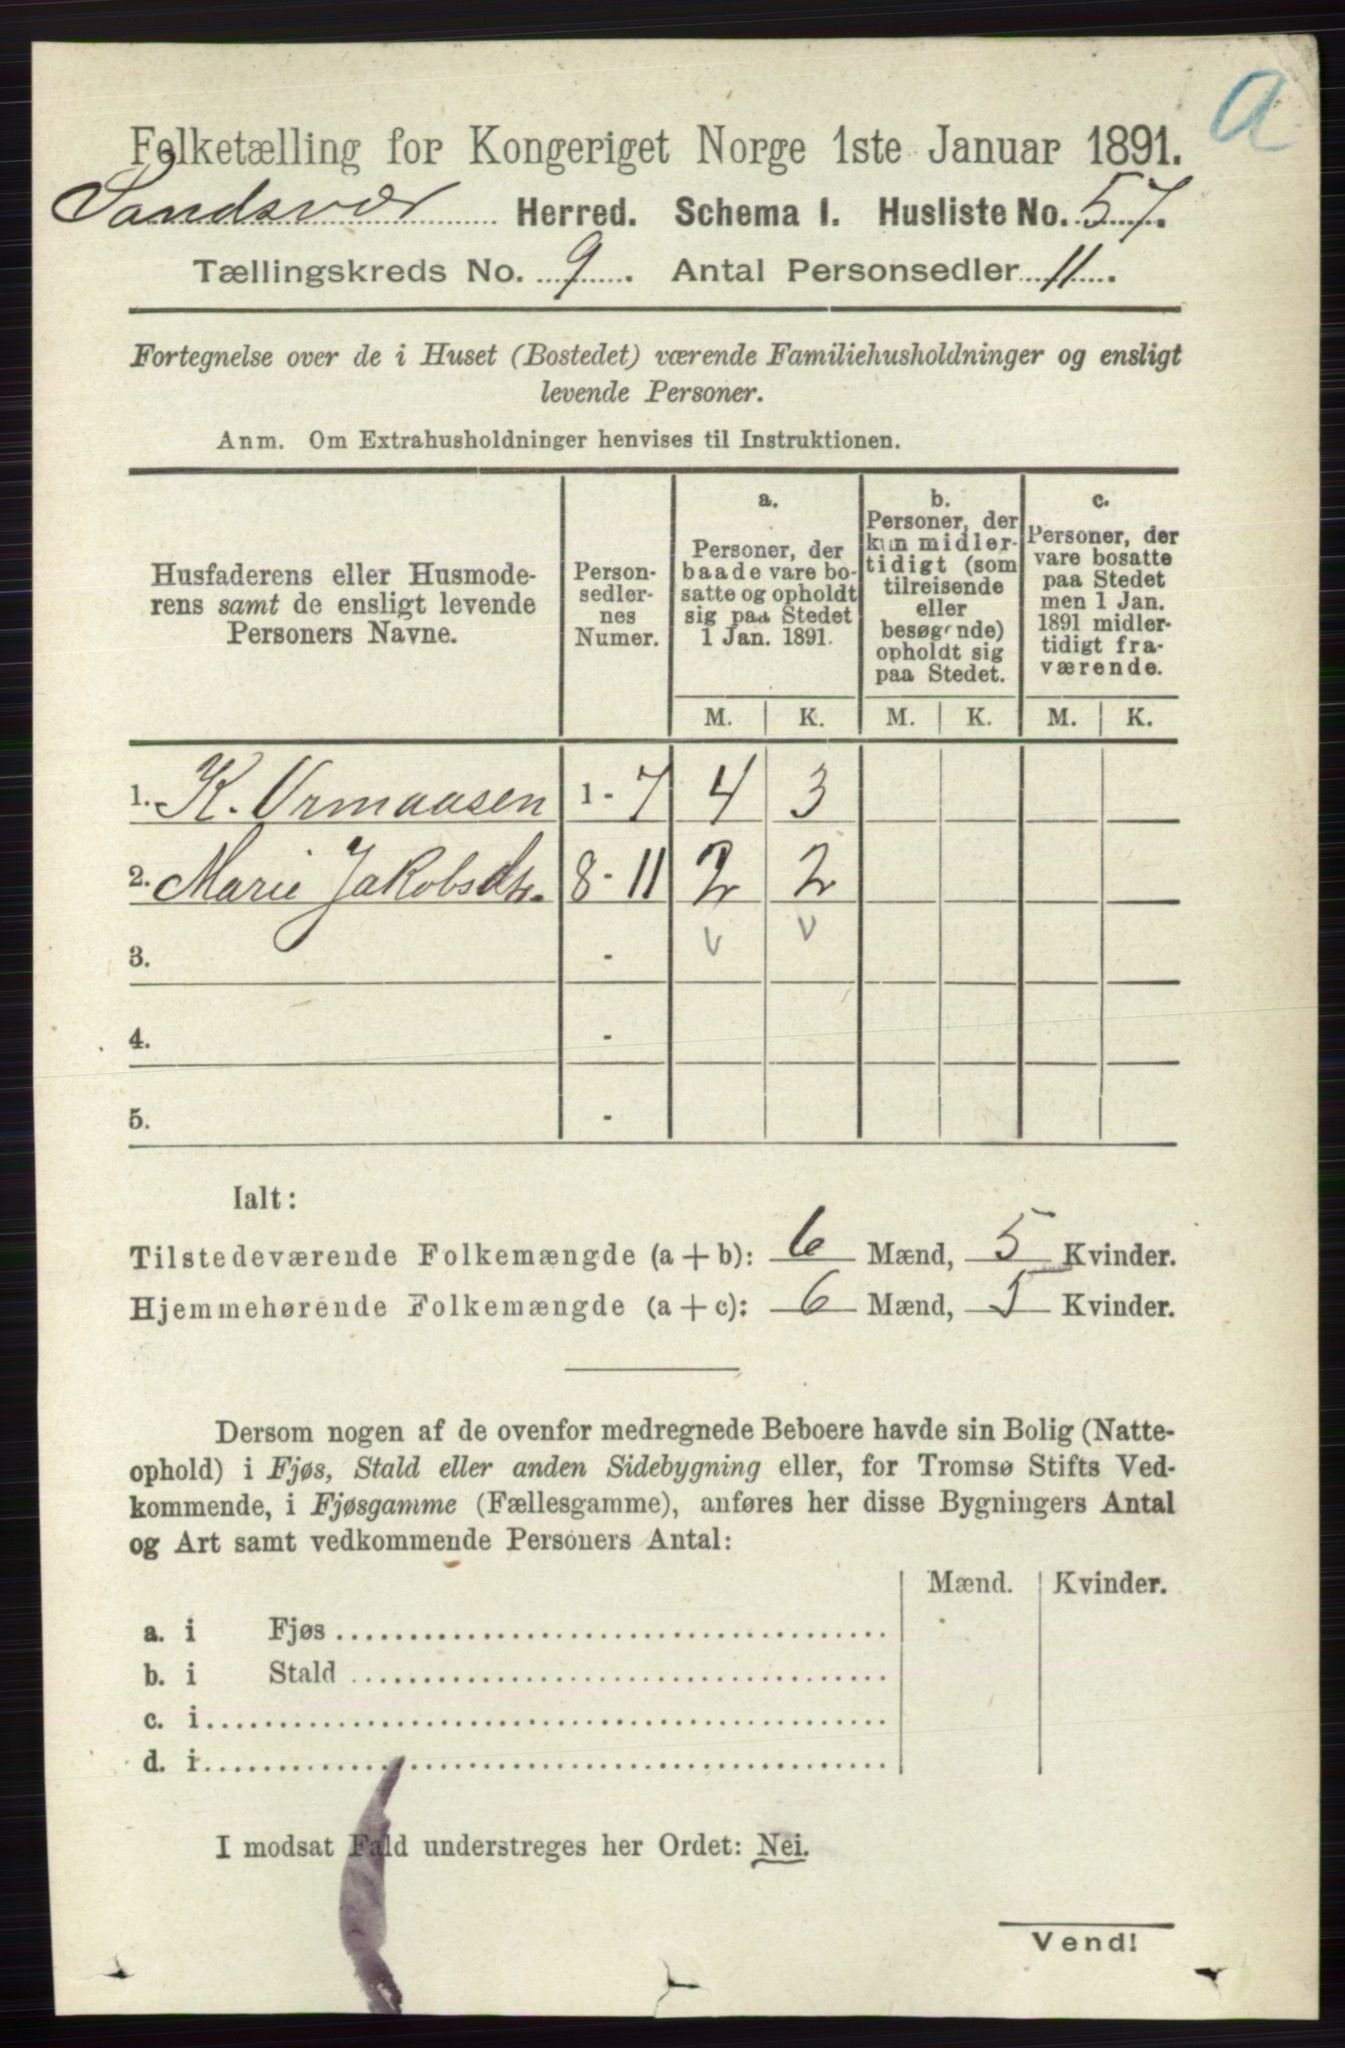 a
Folketælling for Kongeriget Norge 1ste Januar 1891.
Sandsvær Herred. Schema I. Husliste No. 57.
Tællingskreds No. 9. Antal Personsedler 11.
Fortegnelse over de i Huset (Bostedet) værende Familiehusholdninger og ensligt
levende Personer.
Anm. Om Extrahusholdninger henvises til Instruktionen.
Husfaderens eller Husmode-
rens samt de ensligt levende
Personers Navne.
Person-
sedler-
nes
Numer.
a.
Personer, der
baade vare bo-
satte og opholdt
sig paa Stedet
1 Jan. 1891.
b.
Personer, der
kun midler-
tidigt (som
tilreisende
eller
besøgende)
opholdt sig
paa Stedet.
c.
Personer, der
vare bosatte
paa Stedet
men 1 Jan.
1891 midler-
tidigt fra-
værende.
M. K. M. K. M. K.
1. K. Ormaasen 1 - 7 4 3
2. Marie Jakobsdtr. 8 - 11 2 2
3. - v v
4. -
5. -
Ialt:
Tilstedeværende Folkemængde (a + b): 6 Mænd, 5 Kvinder.
Hjemmehørende Folkemængde (a + c): 6 Mænd, 5 Kvinder.
Dersom nogen af de ovenfor medregnede Beboere havde sin Bolig (Natte-
ophold) i Fjøs, Stald eller anden Sidebygning eller, for Tromsø Stifts Ved-
kommende, i Fjøsgamme (Fællesgamme), anføres her disse Bygningers Antal
og Art samt vedkommende Personers Antal:
Mænd. Kvinder.
a. i Fjøs
b. i Stald
c. i
d. i
I modsat Fald understreges her Ordet: Nei.
Vend!